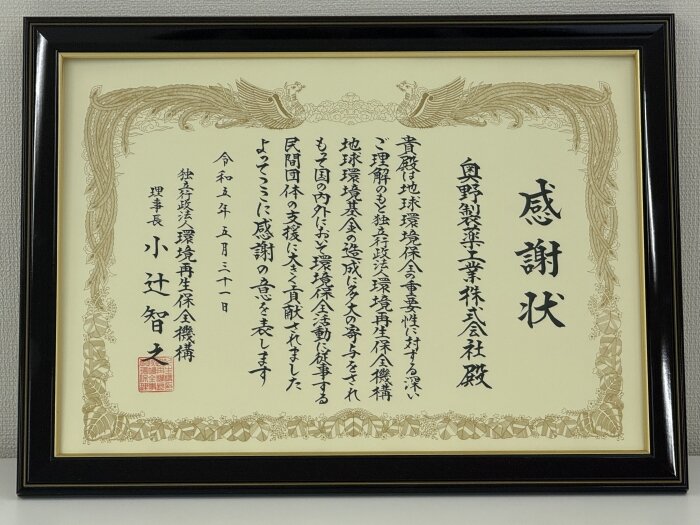 感謝状
奥野製薬工業株式会社 殿
貴殿は地球環境保全の重要性に対する深い
ご理解のもと独立行政法人環境再生保全機構
地球環境基金の造成に多大の寄与をされ
もって国の内外において環境保全活動に従事する
民間団体の支援に大きく貢献されました
よってここに感謝の意を表します
令和五年五月三十一日
独立行政法人環境再生保全機構
理事長 小辻智之